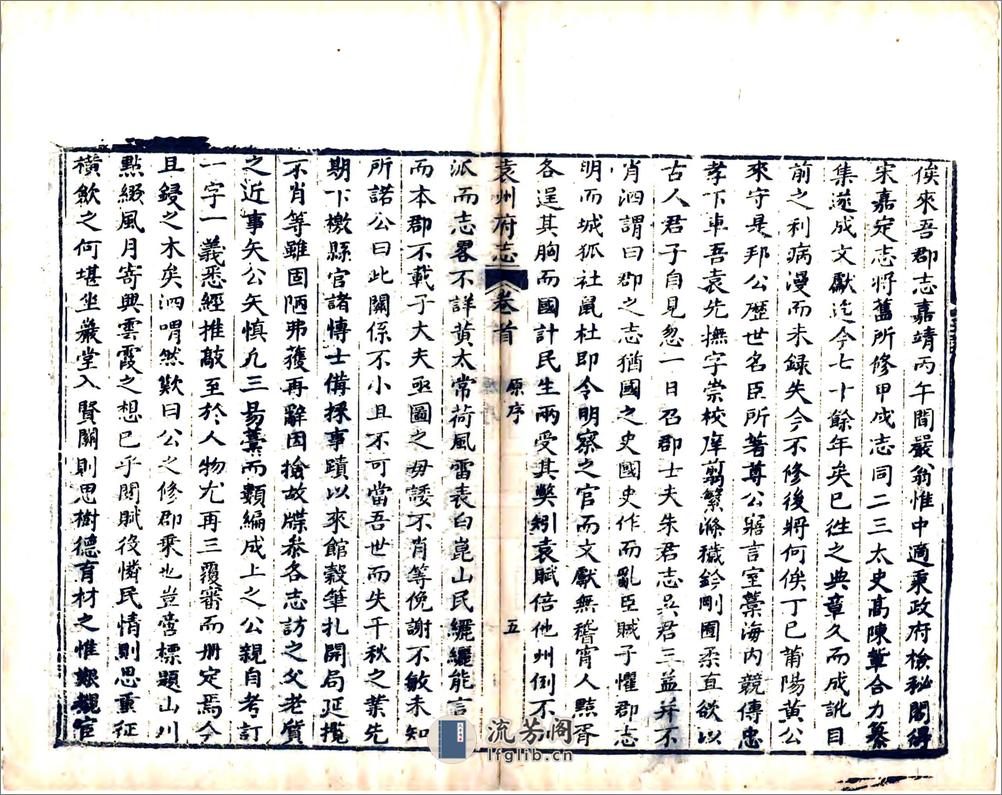 俟來吾郡志嘉靖丙午間嚴翁惟中適秉政府檢秘閣得
宋嘉定志將舊所修甲戌志同二三太史高陳輩合力纂
集遂成文獻迄今七十餘年矣已徃之典章久而成訛目
前之利病漫而未録失今不修後將何俟丁巳莆陽黄公
來守是邦公歷世名臣所著尊公寤言室藁海内競傳忠
孝下車吾袁先撫字崇校庠翦繁滌穢鈐剛囿柔直欲以
古人君子自見忽一日召郡士夫朱君志吴君三益并不
肖泗謂曰郡之志猶國之史國史作而亂臣賊子懼郡志
明而城狐社鼠杜即令明察之官而文獻無稽宵人㸃胥
各逞其胸而國計民生兩受其獘矧袁賦倍他州倒不
袁州府志 卷首 原序 五
派而志畧不詳黄太常荷風雷袁白崑山民纚纚能言
而本郡不載子大夫亟圖之毋諉不肖等俛謝不敏未知
所諾公曰此關係不小且不可當吾世而失千秋之業先
期下檄縣官諸博士備採事蹟以來館穀筆札開局延攬
不肖等雖固陋弗獲再辭因撿故牒叅各志訪之父老質
之近事矣公矢慎九三易藁而類編成上之公親自考訂
一字一義悉經推敲至於人物尤再三覆審而册定焉今
且鋟之木矣泗喟然歎曰公之修郡乗也豈啻標題山川
點綴風月寄興雲霞之想已乎閱賦役憐民情則思重征
橫歛之何堪坐巖堂入賢關則思樹德育材之惟艱觀官
流芳阁
lfglib.cn